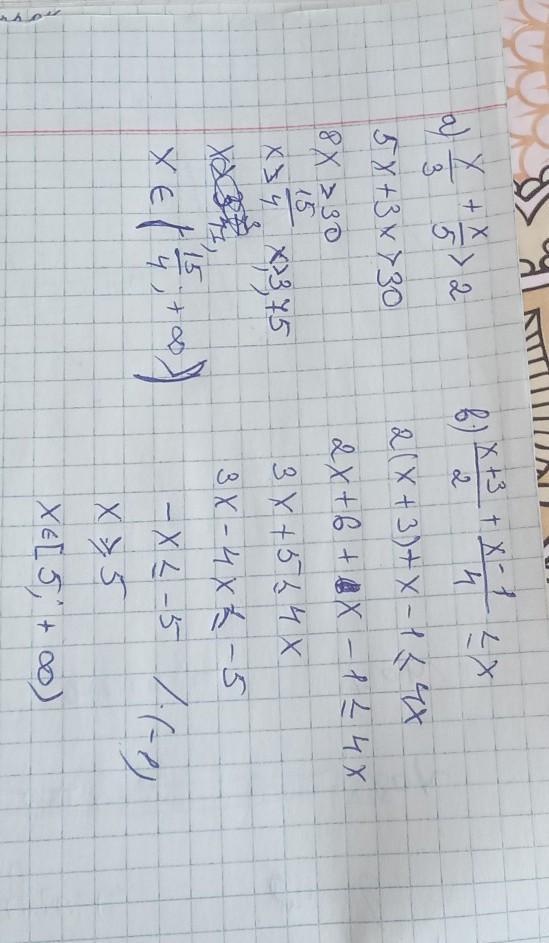 а) x/3 + x/5 > 2
5x + 3x > 30
8x > 30
x > 15/4 x > 3,75
x ∈ (15/4; +∞)
в) x+3/2 + x-1/4 ≤ x
2(x+3) + x - 1 ≤ 4x
2x + 6 + x - 1 ≤ 4x
3x + 5 ≤ 4x
3x - 4x ≤ -5
-x ≤ -5 /·(-1)
x ≥ 5
x ∈ [5; +∞)